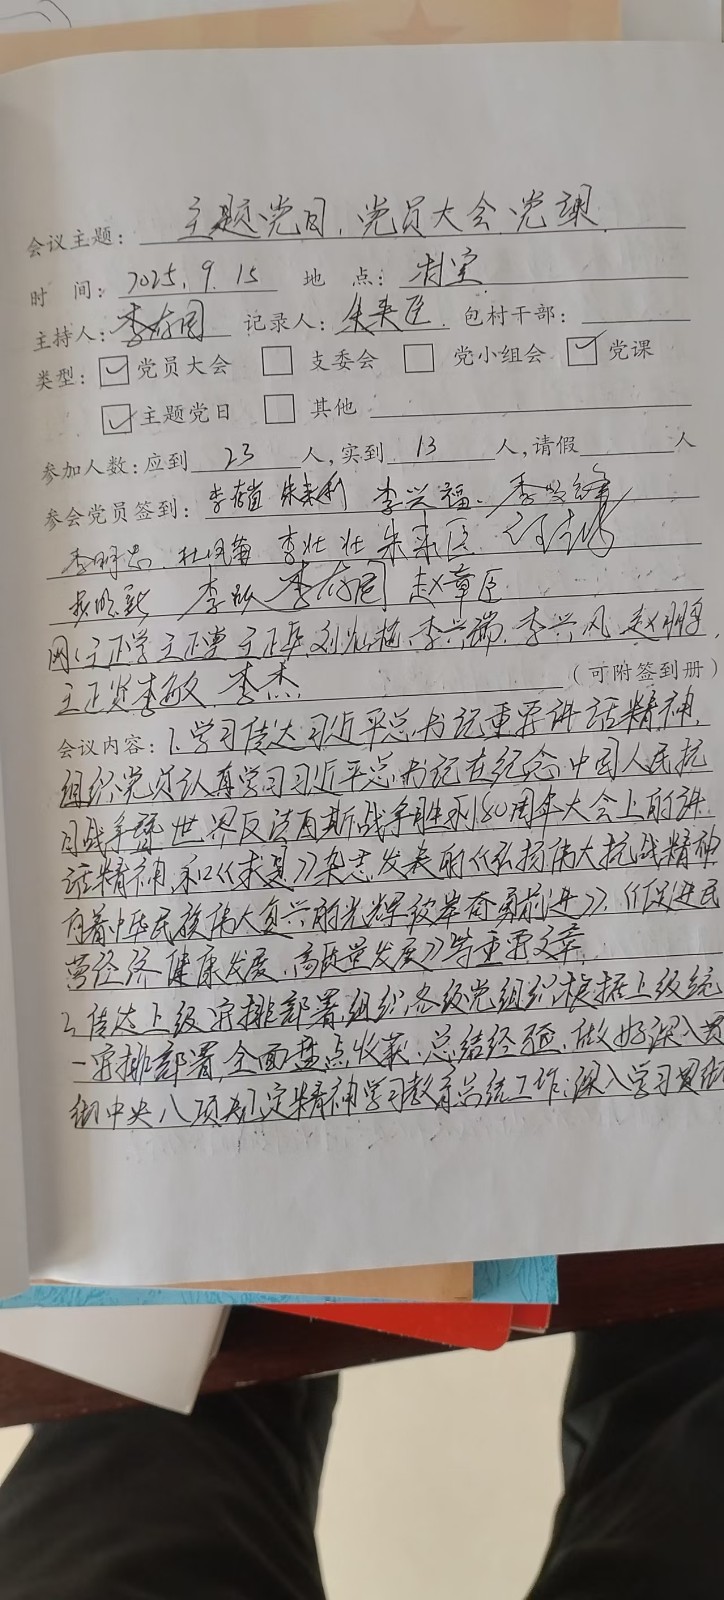 会议主题：主题党日、党员大会、党课
时 间：2025.9.15 地 点：村室
主持人：李存同 记录人：朱来臣 包村干部：
类型：☑党员大会 □支委会 □党小组会 ☑党课
☑主题党日 □其他
参加人数：应到23人，实到13人，请假 人
参会党员签到： 朱来利 李兴福
李壮壮 朱来臣
李存同 赵章臣
李兴瑞、李兴凡
李敏、李杰（可附签到册）
会议内容：1.学习传达习近平总书记重要讲话精神，
组织党员认真学习习近平总书记在纪念中国人民抗
日战争暨世界反法西斯战争胜利80周年大会上的讲
话精神，和《求是》杂志发表的《弘扬伟大抗战精神
向着中华民族伟大复兴的光辉彼岸奋勇前进》、《促进民
营经济健康发展、高质量发展》等重要文章。
2.传达上级安排部署，组织各级党组织根据上级统
一安排部署，全面盘点收获、总结经验，做好深入贯
彻中央八项规定精神学习教育总结工作；深入学习贯彻